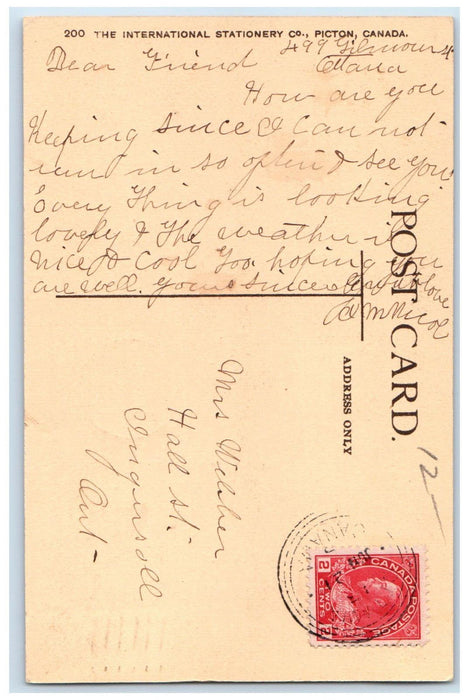 200 THE INTERNATIONAL STATIONERY CO., PICTON, CANADA.
499 Gilmour St
Ottawa
Dear Friend
How are you
Keeping since I can not
run in so often & see you
Every Thing is looking
lovely & The weather is
nice & cool Too hoping you
are well. yours sincerely love
POST CARD.
ADDRESS ONLY
12
Mrs Webber
Hall St.
Ingersoll
Ont-
CANADA
CANADA POSTAGE
2 TWO CENTS 2